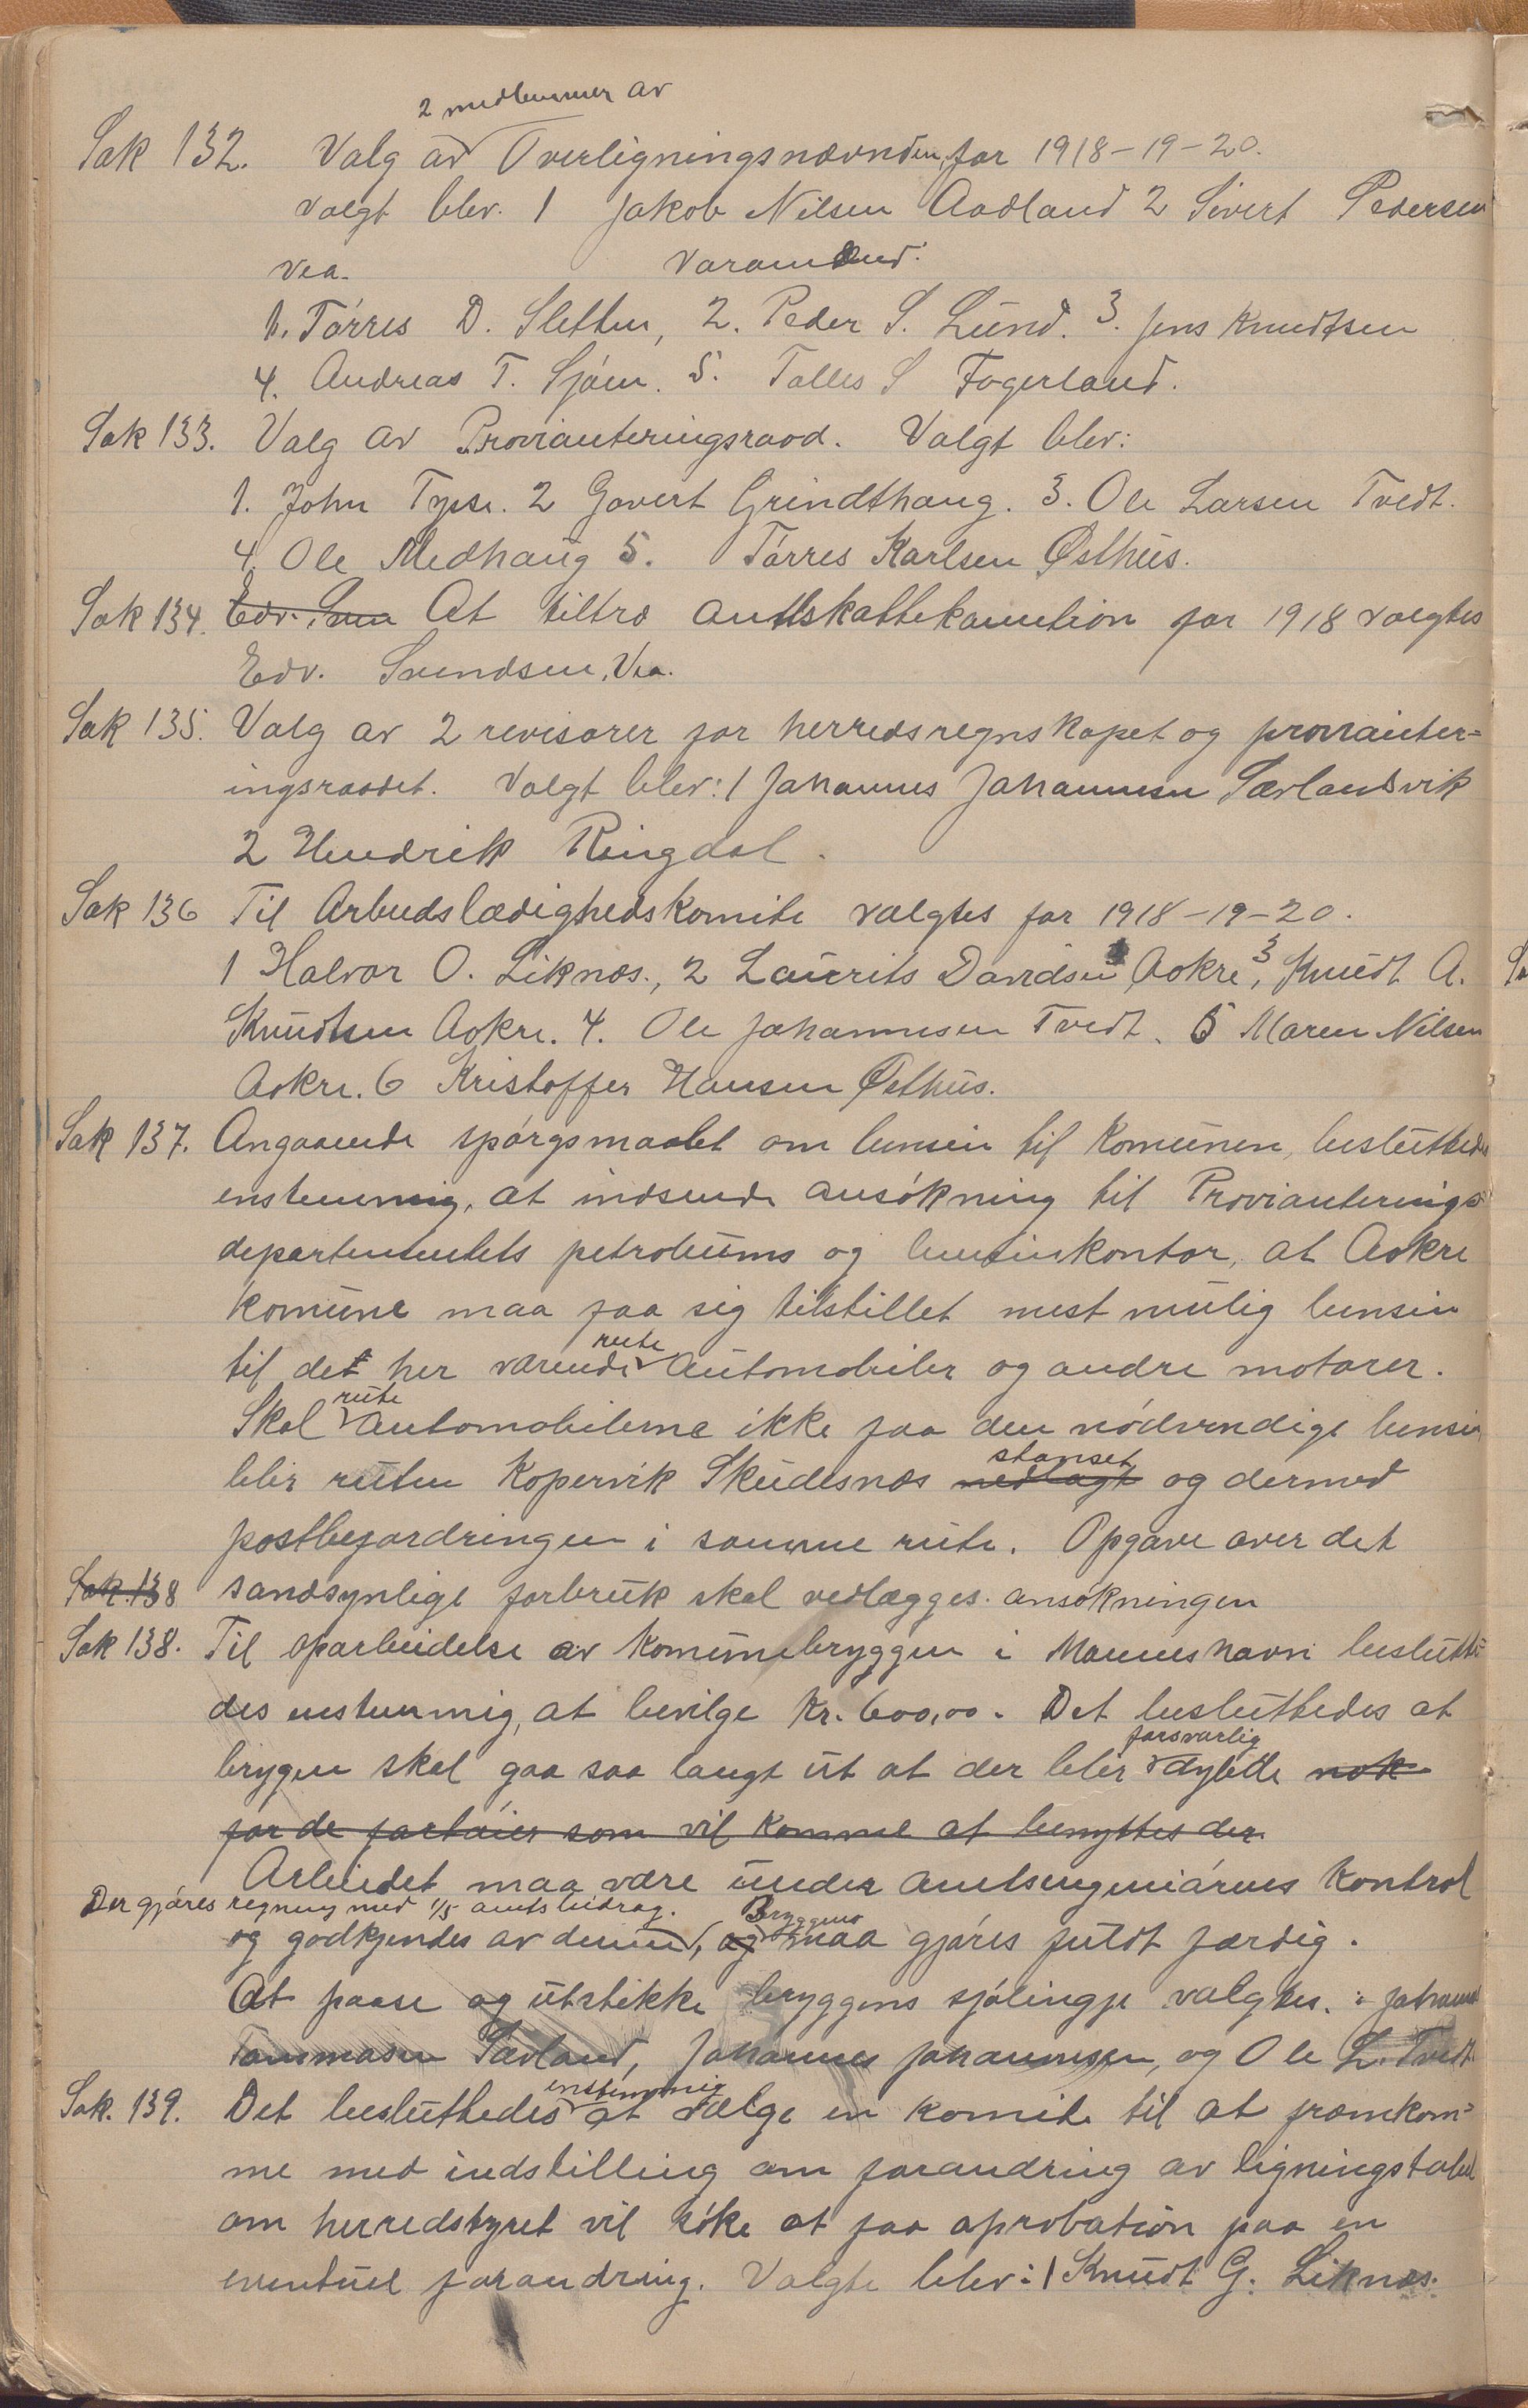 2 medlemmer av
Sak 132. Valg av Overligningsnævnden for 1918-19-20.
valgt blev. 1 Jakob Nilsen Aadland 2 Sivert Pedersen
Vea. Varamænd.
1. Tórres D. Sletten, 2. Peder S. Lund. 3. Jens Knudtsen
4. Andreas T. Sjóen. 5. Talles S Fagerland.
Sak 133. Valg av Provianteringsraad. Valgt blev:
1. John Tyse. 2 Govert Grindthaug. 3. Ole Larsen Tvedt.
4. Ole Medhaug 5. Tórres Karlsen Østhus.
Sak 134. Edv. Sven At tiltræ amtskattekomition for 1918 valgtes
Edv. Svendsen, Vea.
Sak 135. Valg av 2 revisorer for herredsregnskapet og provianter=
ingsraadet. Valgt blev: 1 Johannes Johannesen Sævlandsvik
2 Hendrik Ringdal.
Sak 136 Til Arbeidslædighedskomite valgtes for 1918-19-20.
1 Halvor O. Liknæs., 2 Laurits Davidsen Aakre, 3 Knudt A.
Knudtsen Aakre. 4. Ole Johannesen Tvedt. 5 Maren Nilsen
Aakre. 6 Kristoffer Hansen Østhus.
Sak 137. Angaaende spórgsmaalet om bensin til Komunen, besluttedes
enstemmig, at indsende ansókning til Provianterings
departementets petroleums og bensinkontor, at Aakre
Komune maa faa sig tilstillet mest mulig bensin
rute
til det her værende automobiler og andre motorer.
rute
Skal automobilerne ikke faa den nódvendige bensin
stanset
blir ruten Kopervik Skudesnæs nedlagt og dermed
postbefordringen i samme rute. Opgave over det
Sak. 138 sandsynlige forbruk skal vedlægges. ansókningen
Sak 138. Til oparbeidelse av Komunebryggen i Mannes havn beslutte=
des enstemmig, at bevilge Kr. 600,00. Det besluttedes at
forsvarlig
brygen skal gaa saa langt ut at der blir dybde nok
for de fartóier som vil komme at benyttes der.
Arbeidet maa være under amtsingeniórens Kontrol
Der gjóres regning med 1/5 amtsbidrag. Bryggens
og godkjendes av denne, og maa gjóres fuldt færdig.
At paase og utstikke bryggens sjólingje valgtes. Johannes
Tommasen Sævland, Johannes Johannesen, og Ole L. Tvedt.
enstemmig
Sak. 139. Det besluttedes at vælge en komite til at fræmkom=
me med indstilling om forandring av ligningstabel
om herredstyret vil sóke at faa aprobation paa en
eventuel forandring. Valgte blev: 1 Knudt G. Liknæs.